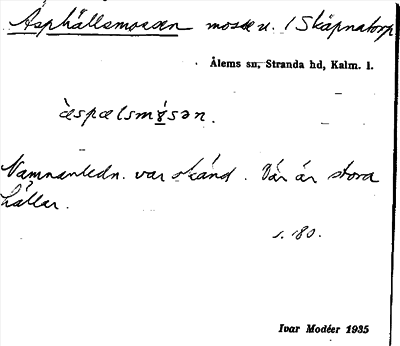 Äsphällsmossen mosse u. 1 Skäpnatorp
Ålems sn, Stranda hd, Kalm. l.
àspælsmɣ́sən.
Namnanledn. var okänd. Där är stora
hällar.
s. 180.
Ivar Modéer 1935